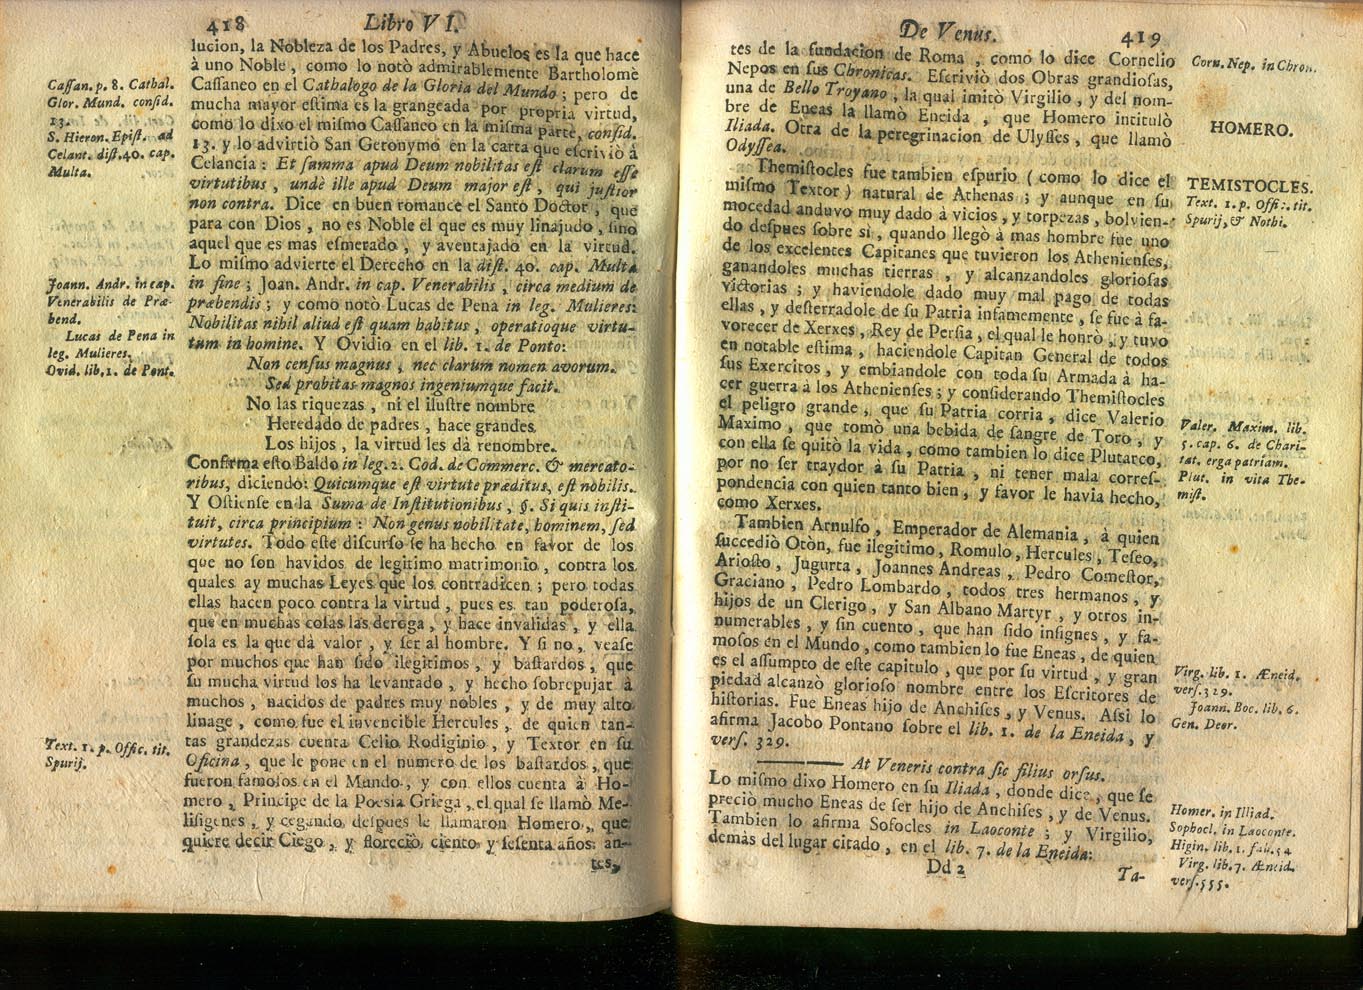 418 Libro VI.
lucion, la Nobleza de los Padres, y Abuelos es la que hace
à uno Noble, como lo notò admirablemente Bartholomè
Caſſaneo en el Cathalogo de la Gloria del Mundo; pero de
mucha mayor eſtima es la grangeada por propria virtud,
como lo dixo el miſmo Caſſaneo en la miſma parte, conſid.
13. y lo advirtiò San Geronymo en la carta que eſcriviò à
Celancia: Et ſumma apud Deum nobilitas eſt clarum eſſe
virtutibus, undè ille apud Deum major eſt, qui juſtior
non contra. Dice en buen romance el Santo Doctor, que
para con Dios, no es Noble el que es muy linajudo, ſino
aquel que es mas eſmerado, y aventajado en la virtud.
Lo miſmo advierte el Derecho en la diſt. 40. cap. Multa
in fine; Joan. Andr. in cap. Venerabilis, circa medium de
præbendis; y como notò Lucas de Pena in leg. Mulieres:
Nobilitas nihil aliud eſt quam habitus, operatioque virtu-
tum in homine. Y Ovidio en el lib. 1. de Ponto:
Non cenſus magnus, nec clarum nomen avorum.
Sed probitas magnos ingeniumque facit.
No las riquezas, ni el iluſtre nombre
Heredado de padres, hace grandes
Los hijos, la virtud les dà renombre.
Confirma eſto Baldo in leg. 2. Cod. de Commerc. & mercato-
ribus, diciendo: Quicumque eſt virtute præditus, eſt nobilis.
Y Oſtienſe en la Suma de Inſtitutionibus, §. Si quis inſti-
tuit, circa principium: Non genus nobilitate, hominem, ſed
virtutes. Todo eſte diſcurſo ſe ha hecho en favor de los
que no ſon havidos de legitimo matrimonio, contra los
quales ay muchas Leyes que los contradicen; pero todas
ellas hacen poco contra la virtud, pues es tan poderoſa,
que en muchas coſas las deroga, y hace invalidas, y ella
ſola es la que dà valor, y ſer al hombre. Y ſi no, veaſe
por muchos que han ſido ilegitimos, y baſtardos, que
ſu mucha virtud los ha levantado, y hecho ſobrepujar à
muchos, nacidos de padres muy nobles, y de muy alto
linage, como fue el invencible Hercules, de quien tan-
tas grandezas cuenta Celio Rodiginio, y Textor en ſu
Oficina, que le pone en el numero de los baſtardos, que
fueron famoſos en el Mundo, y con ellos cuenta à Ho-
mero, Principe de la Poesia Griega, el qual ſe llamò Me-
liſigenes, y cegando, deſpues le llamaron Homero, que
quiere decir Ciego, y floreciò ciento y ſeſenta años an-
tes
Caſſan. p. 8. Cathal.
Glor. Mund. conſid.
13.
S. Hieron. Epiſt. ad
Celant. diſt. 40. cap.
Multa.
Joann. Andr. in cap.
Venerabilis de Præ-
bend.
Lucas de Pena in
leg. Mulieres.
Ovid. lib. 1. de Pont.
Text. 1. p. Offic. tit.
Spurij.
De Venus. 419
tes de la fundacion de Roma, como lo dice Cornelio
Nepos en ſus Chronicas. Eſcriviò dos Obras grandioſas,
una de Bello Troyano, la qual imitò Virgilio, y del nom-
bre de Eneas la llamò Eneida, que Homero intitulò
Iliada. Otra de la peregrinacion de Ulyſſes, que llamò
Odyſſea.
Themiſtocles fue tambien eſpurio (como lo dice el
miſmo Textor) natural de Athenas; y aunque en ſu
mocedad anduvo muy dado à vicios, y torpezas, bolvien-
do deſpues ſobre sì, quando llegò à mas hombre fue uno
de los excelentes Capitanes que tuvieron los Athenienſes,
ganandoles muchas tierras, y alcanzandoles glorioſas
victorias; y haviendole dado muy mal pago de todas
ellas, y deſterradole de ſu Patria infamemente, ſe fue à fa-
vorecer de Xerxes, Rey de Perſia, el qual le honrò, y tuvo
en notable eſtima, haciendole Capitan General de todos
ſus Exercitos, y embiandole con toda ſu Armada à ha-
cer guerra à los Athenienſes; y conſiderando Themiſtocles
el peligro grande, que ſu Patria corria, dice Valerio
Maximo, que tomò una bebida de ſangre de Toro, y
con ella ſe quitò la vida, como tambien lo dice Plutarco,
por no ſer traydor à ſu Patria, ni tener mala correſ-
pondencia con quien tanto bien, y favor le havia hecho,
como Xerxes.
Tambien Arnulfo, Emperador de Alemania, à quien
ſuccediò Otòn, fue ilegitimo, Romulo, Hercules, Teſeo,
Arioſto, Jugurta, Joannes Andreas, Pedro Comeſtor,
Graciano, Pedro Lombardo, todos tres hermanos, y
hijos de un Clerigo, y San Albano Martyr, y otros in-
numerables, y ſin cuento, que han ſido inſignes, y fa-
moſos en el Mundo, como tambien lo fue Eneas, de quien
es el aſſumpto de eſte capitulo, que por ſu virtud, y gran
piedad alcanzò glorioſo nombre entre los Eſcritores de
hiſtorias. Fue Eneas hijo de Anchiſes, y Venus. Aſsi lo
afirma Jacobo Pontano ſobre el lib. 1. de la Eneida, y
verſ. 329.
At Veneris contra ſic filius orſus.
Lo miſmo dixo Homero en ſu Iliada, donde dice, que ſe
preciò mucho Eneas de ſer hijo de Anchiſes, y de Venus.
Tambien lo afirma Sofocles in Laoconte; y Virgilio,
demàs del lugar citado, en el lib. 7. de la Eneida:
Dd 2 Ta-
Corn. Nep. in Chron.
HOMERO.
TEMISTOCLES.
Text. 1. p. Offic. tit.
Spurij, & Nothi.
Valer. Maxim. lib.
5. cap. 6. de Chari-
tat. erga patriam.
Plut. in vita The-
miſt.
Virg. lib. 1. Æneid.
verſ. 329.
Joann. Boc. lib. 6.
Gen. Deor.
Homer. in Illiad.
Sophocl. in Laoconte.
Higin. lib. 1. fab. 54
Virg. lib. 7. Æneid.
verſ. 555.